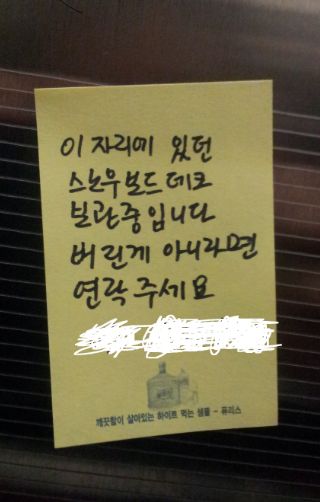 이 자리에 있던
스노우보드 데크
보관중입니다
버린게 아니라면
연락 주세요
깨끗함이 살아있는 하이트 먹는 샘물 - 퓨리스